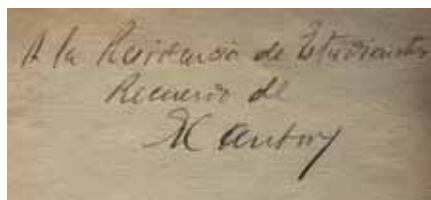 A la Residencia de Estudiantes
Recuerdo de